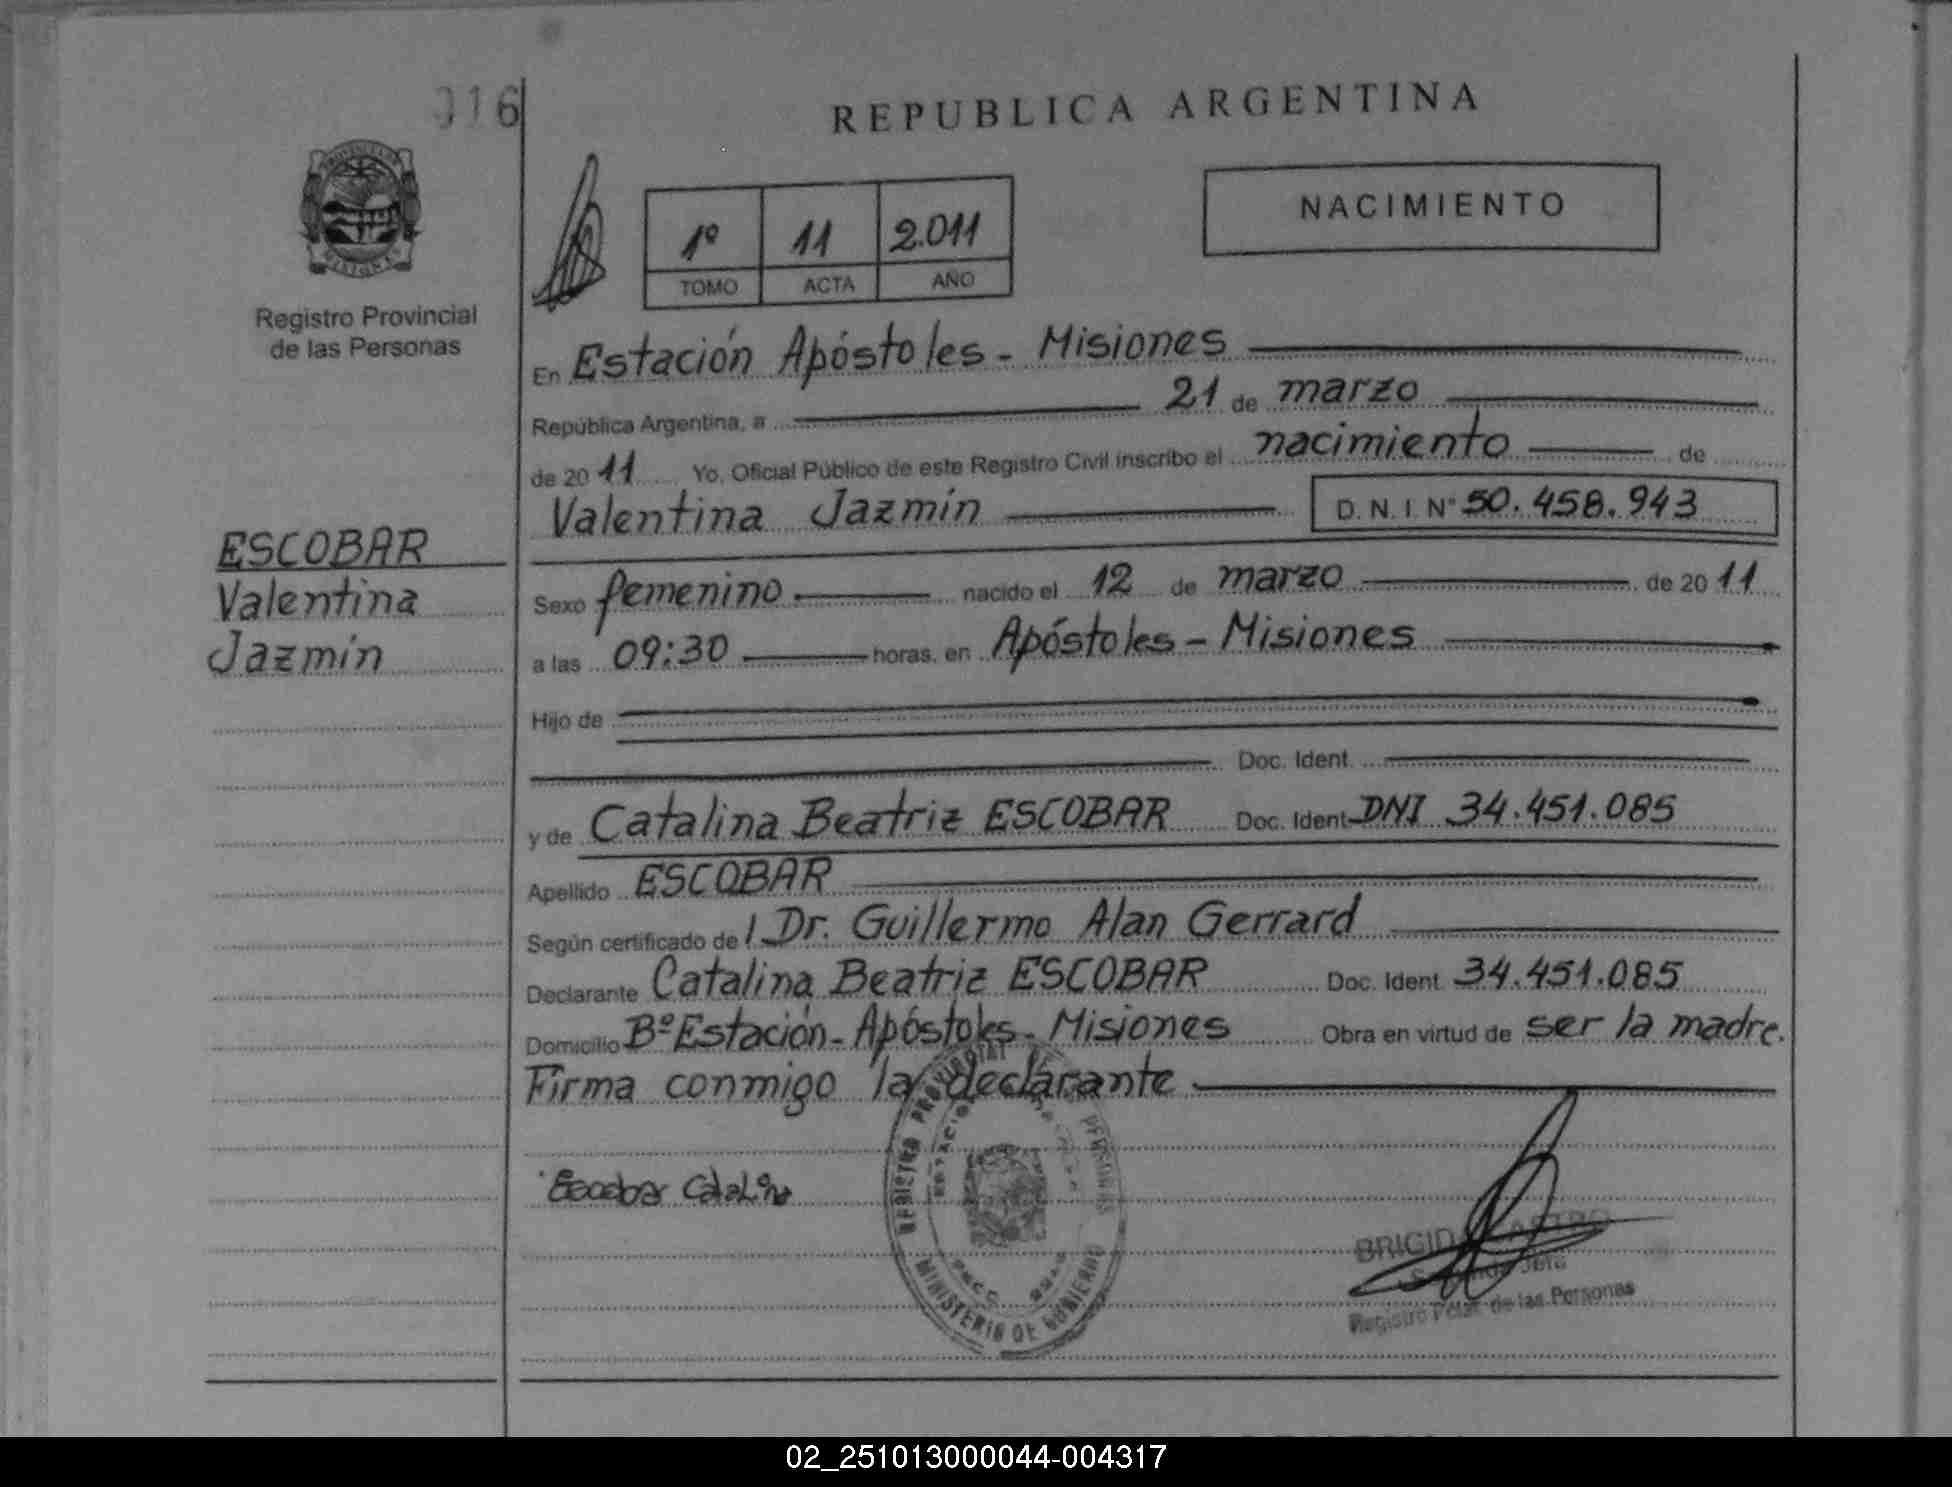 016
REPUBLICA ARGENTINA
NACIMIENTO
1º 11 2.011
TOMO ACTA AÑO
Registro Provincial
de las Personas
En Estación Apóstoles - Misiones
República Argentina, a 21 de marzo
de 20 11 Yo, Oficial Público de este Registro Civil inscribo el nacimiento de
Valentina Jazmín D.N.I. Nº 50.458.943
ESCOBAR
Valentina
Jazmín
Sexo femenino nacido el 12 de marzo de 20 11
a las 09:30 horas, en Apóstoles - Misiones
Hijo de
Doc. Ident.
y de Catalina Beatriz ESCOBAR Doc. Ident. DNI 34.451.085
Apellido ESCOBAR
Según certificado de l Dr. Guillermo Alan Gerrard
Declarante Catalina Beatriz ESCOBAR Doc. Ident. 34.451.085
Domicilio Bº Estación - Apóstoles - Misiones Obra en virtud de ser la madre.
Firma conmigo la declarante
Escobar Catalina
REGISTRO PROVINCIAL DE LAS PERSONAS
MINISTERIO DE GOBIERNO
BRIGIDA CASTRO
Segunda Jefa
Registro Pcial. de las Personas
02_251013000044-004317